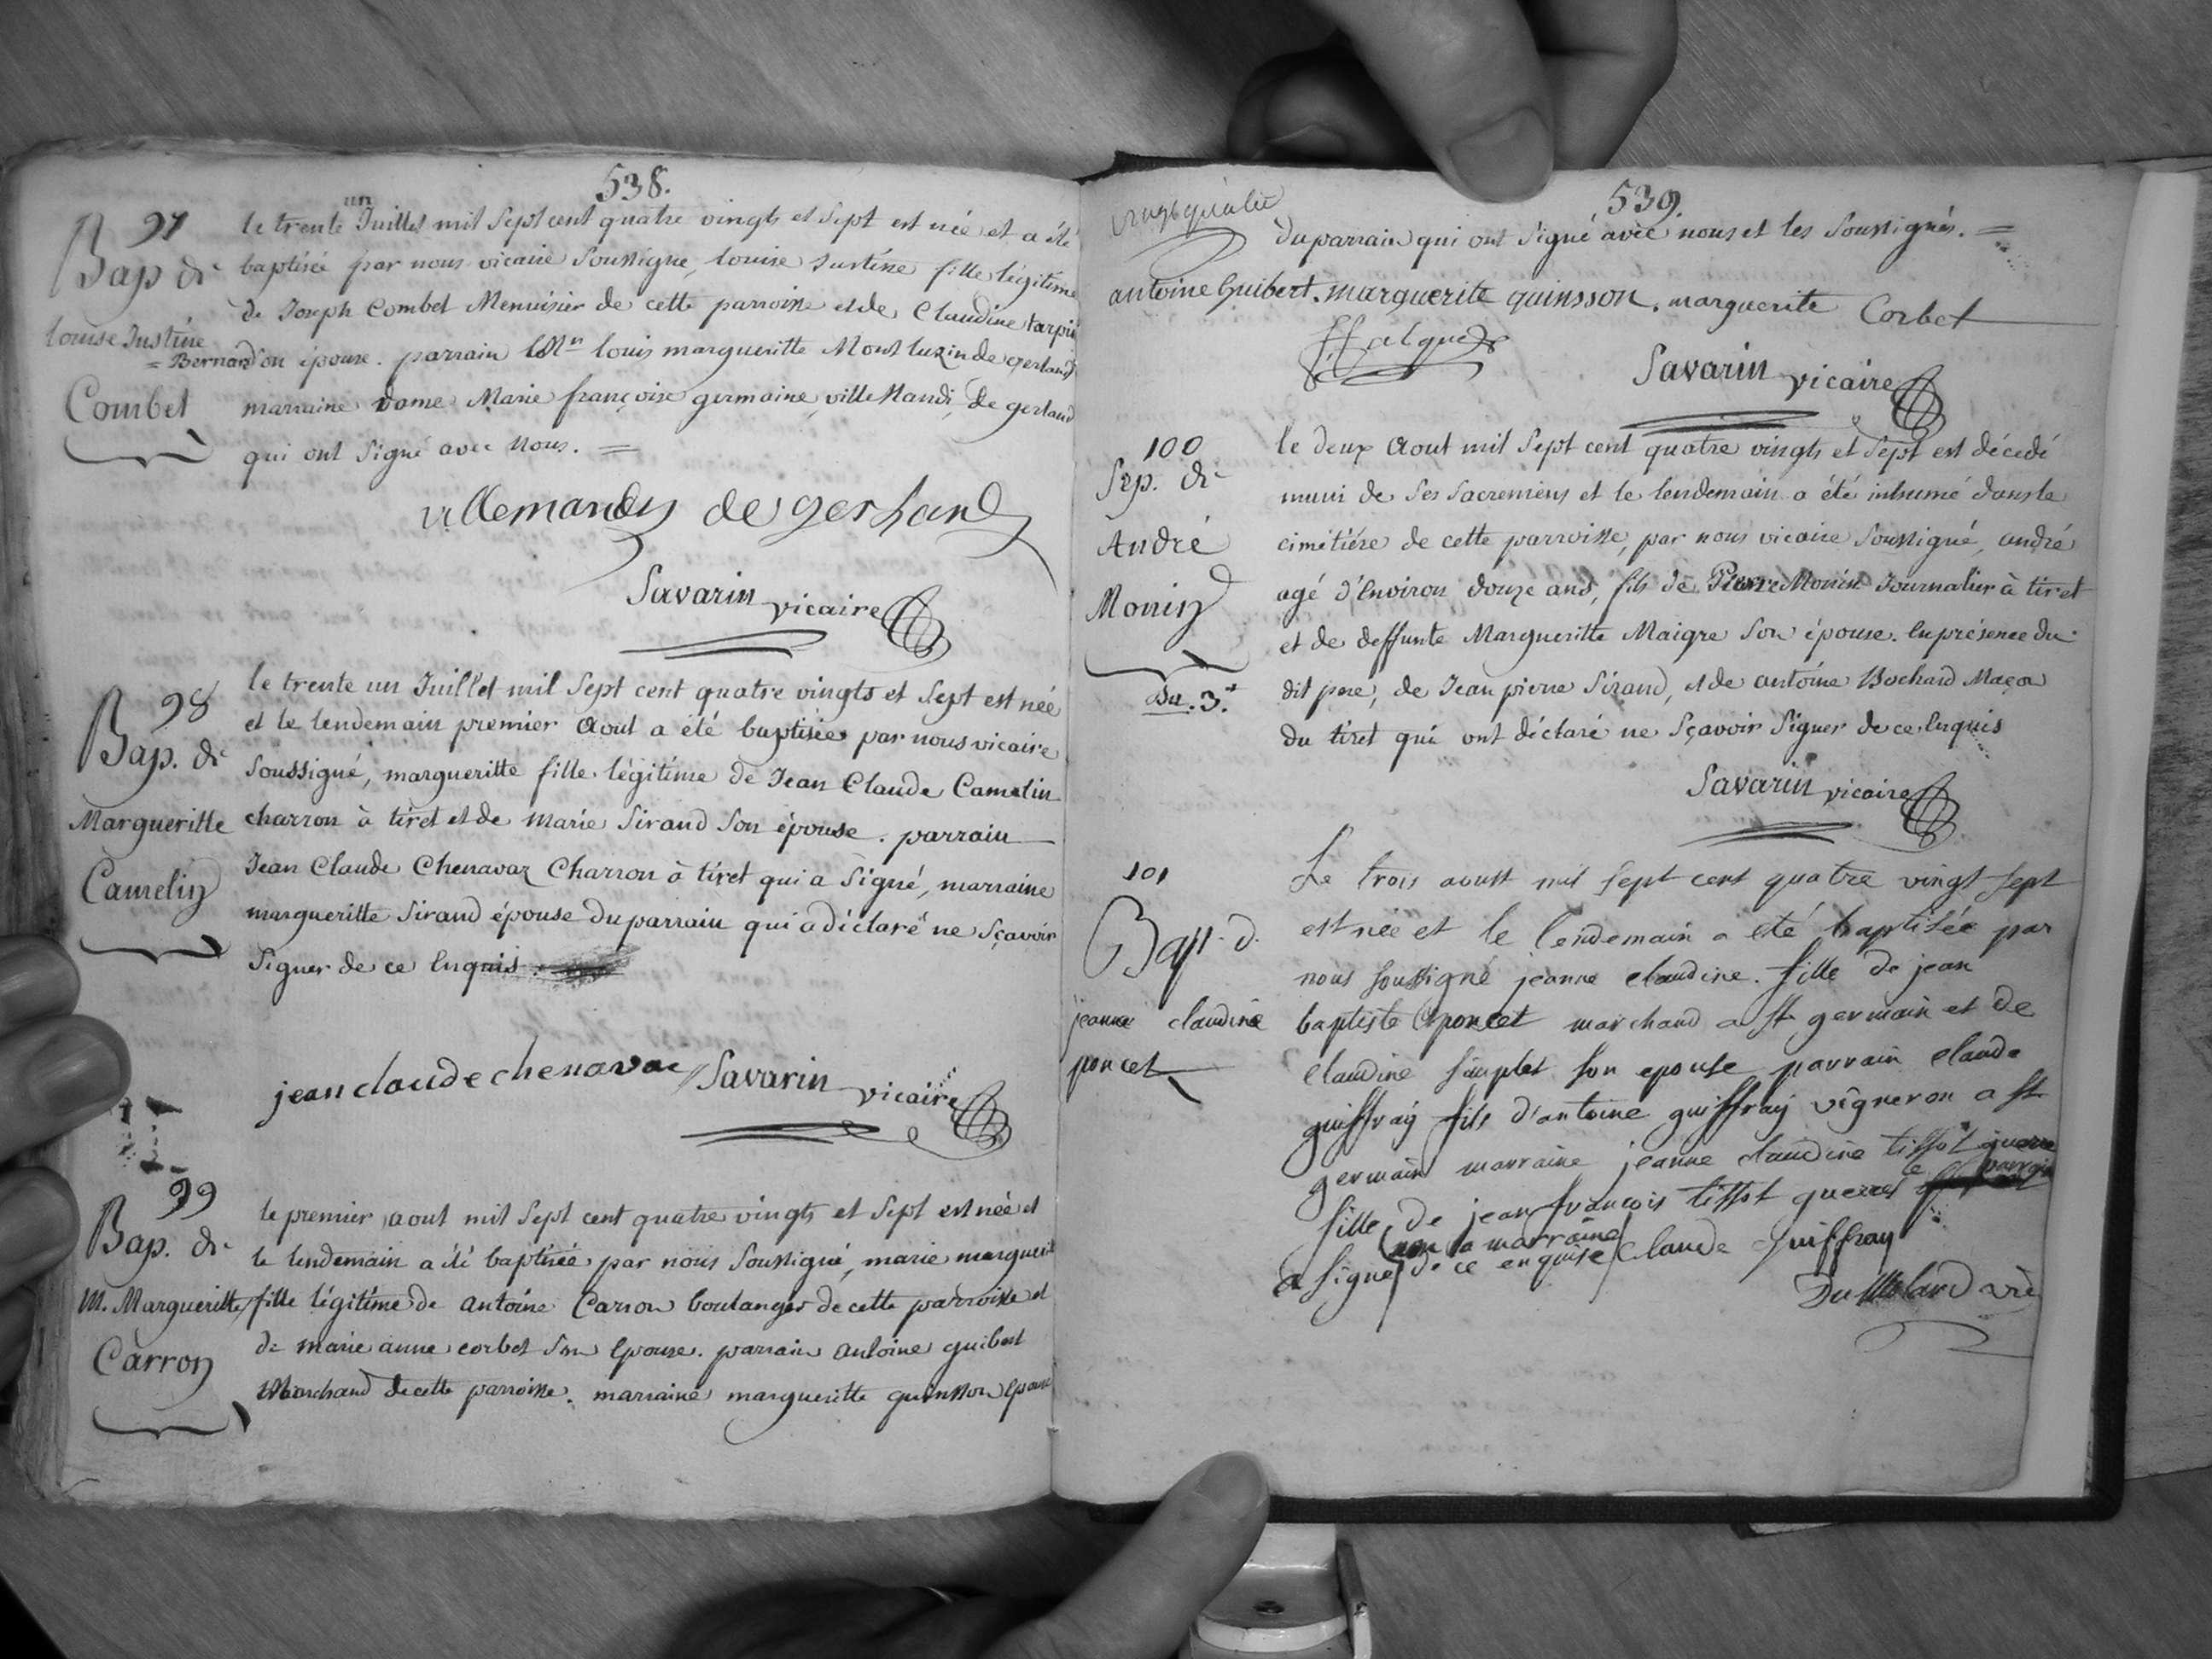 538.
97
Bap de
louise Justine
= Bernard
Combet
le trente un Juillet mil Sept cent quatre vingts et Sept est née et a été
baptisée par nous vicaire Soussigné, louise Justine fille légitime
de Joseph Combet Menuisier de cette parroisse et de Claudine
Son épouse. parrain louis margueritte Montluzin de gerland
marraine Dame Marie françoise germaine villemandi, de gerland
qui ont Signé avec Nous. =
villemandy de gerland
Savarin vicaire
98
Bap. de
Margueritte
Camelin
le trente un Juillet mil Sept cent quatre vingts et Sept est née
et le lendemain premier Aout a été baptisée par nous vicaire
Soussigné, margueritte fille légitime de Jean Claude Camelin
charron à tiret et de Marie Sirand Son épouse. parrain
Jean Claude Chenavaz Charron à tiret qui a Signé, marraine
margueritte Sirand épouse du parrain qui a déclaré ne Sçavoir
Signer de ce Enquis.
jean claude chenavaz Savarin vicaire
99
Bap. de
M. Margueritte
Carron
le premier aout mil Sept cent quatre vingts et Sept est née et
le lendemain a été baptisée par nous Soussigné, marie margueri
fille légitime de Antoine Carron boulanger de cette parroisse et
de marie anne corbet Son Epouse. parrain Antoine guibert
Marchand de cette parroisse. marraine margueritte quinsson Epouse
539.
du parrain qui ont Signé avec nous et les Soussignés. =
antoine Guibert. marguerite quinsson. marguerite Corbet
Savarin vicaire
100
Sep. de
André
Monin
Du. 3.
le deux Aout mil Sept cent quatre vingts et Sept est décedé
muni de Ses Sacremens et le lendemain a été inhumé dans le
cimétiére de cette parroisse, par nous vicaire Soussigné, andré
agé d'Environ douze ans, fils de Pierre Monin Journalier à tiret
et de deffunte Margueritte Maigre Son épouse. En présence du
dit pere, de Jean pierre Sirand, et de antoine Bochard Maçon
du tiret qui ont déclaré ne Sçavoir Signer de ce Enquis
Savarin vicaire
101
Bapt. d.
jeanne claudine
poncet
Le trois aoust mil sept cent quatre vingt sept
est née et le lendemain a eté baptisée par
nous soussigné jeanne claudine. fille de jean
baptiste poncet marchand a st germain et de
claudine son epouse parrain claude
guiffray fils d'antoine guiffray vigneron a st
germain marraine jeanne claudine tissot guerre
fille de jean francois tissot guerre le parrain
a signé non la marraine de ce enquise Claude Guiffray
Du Molard vic